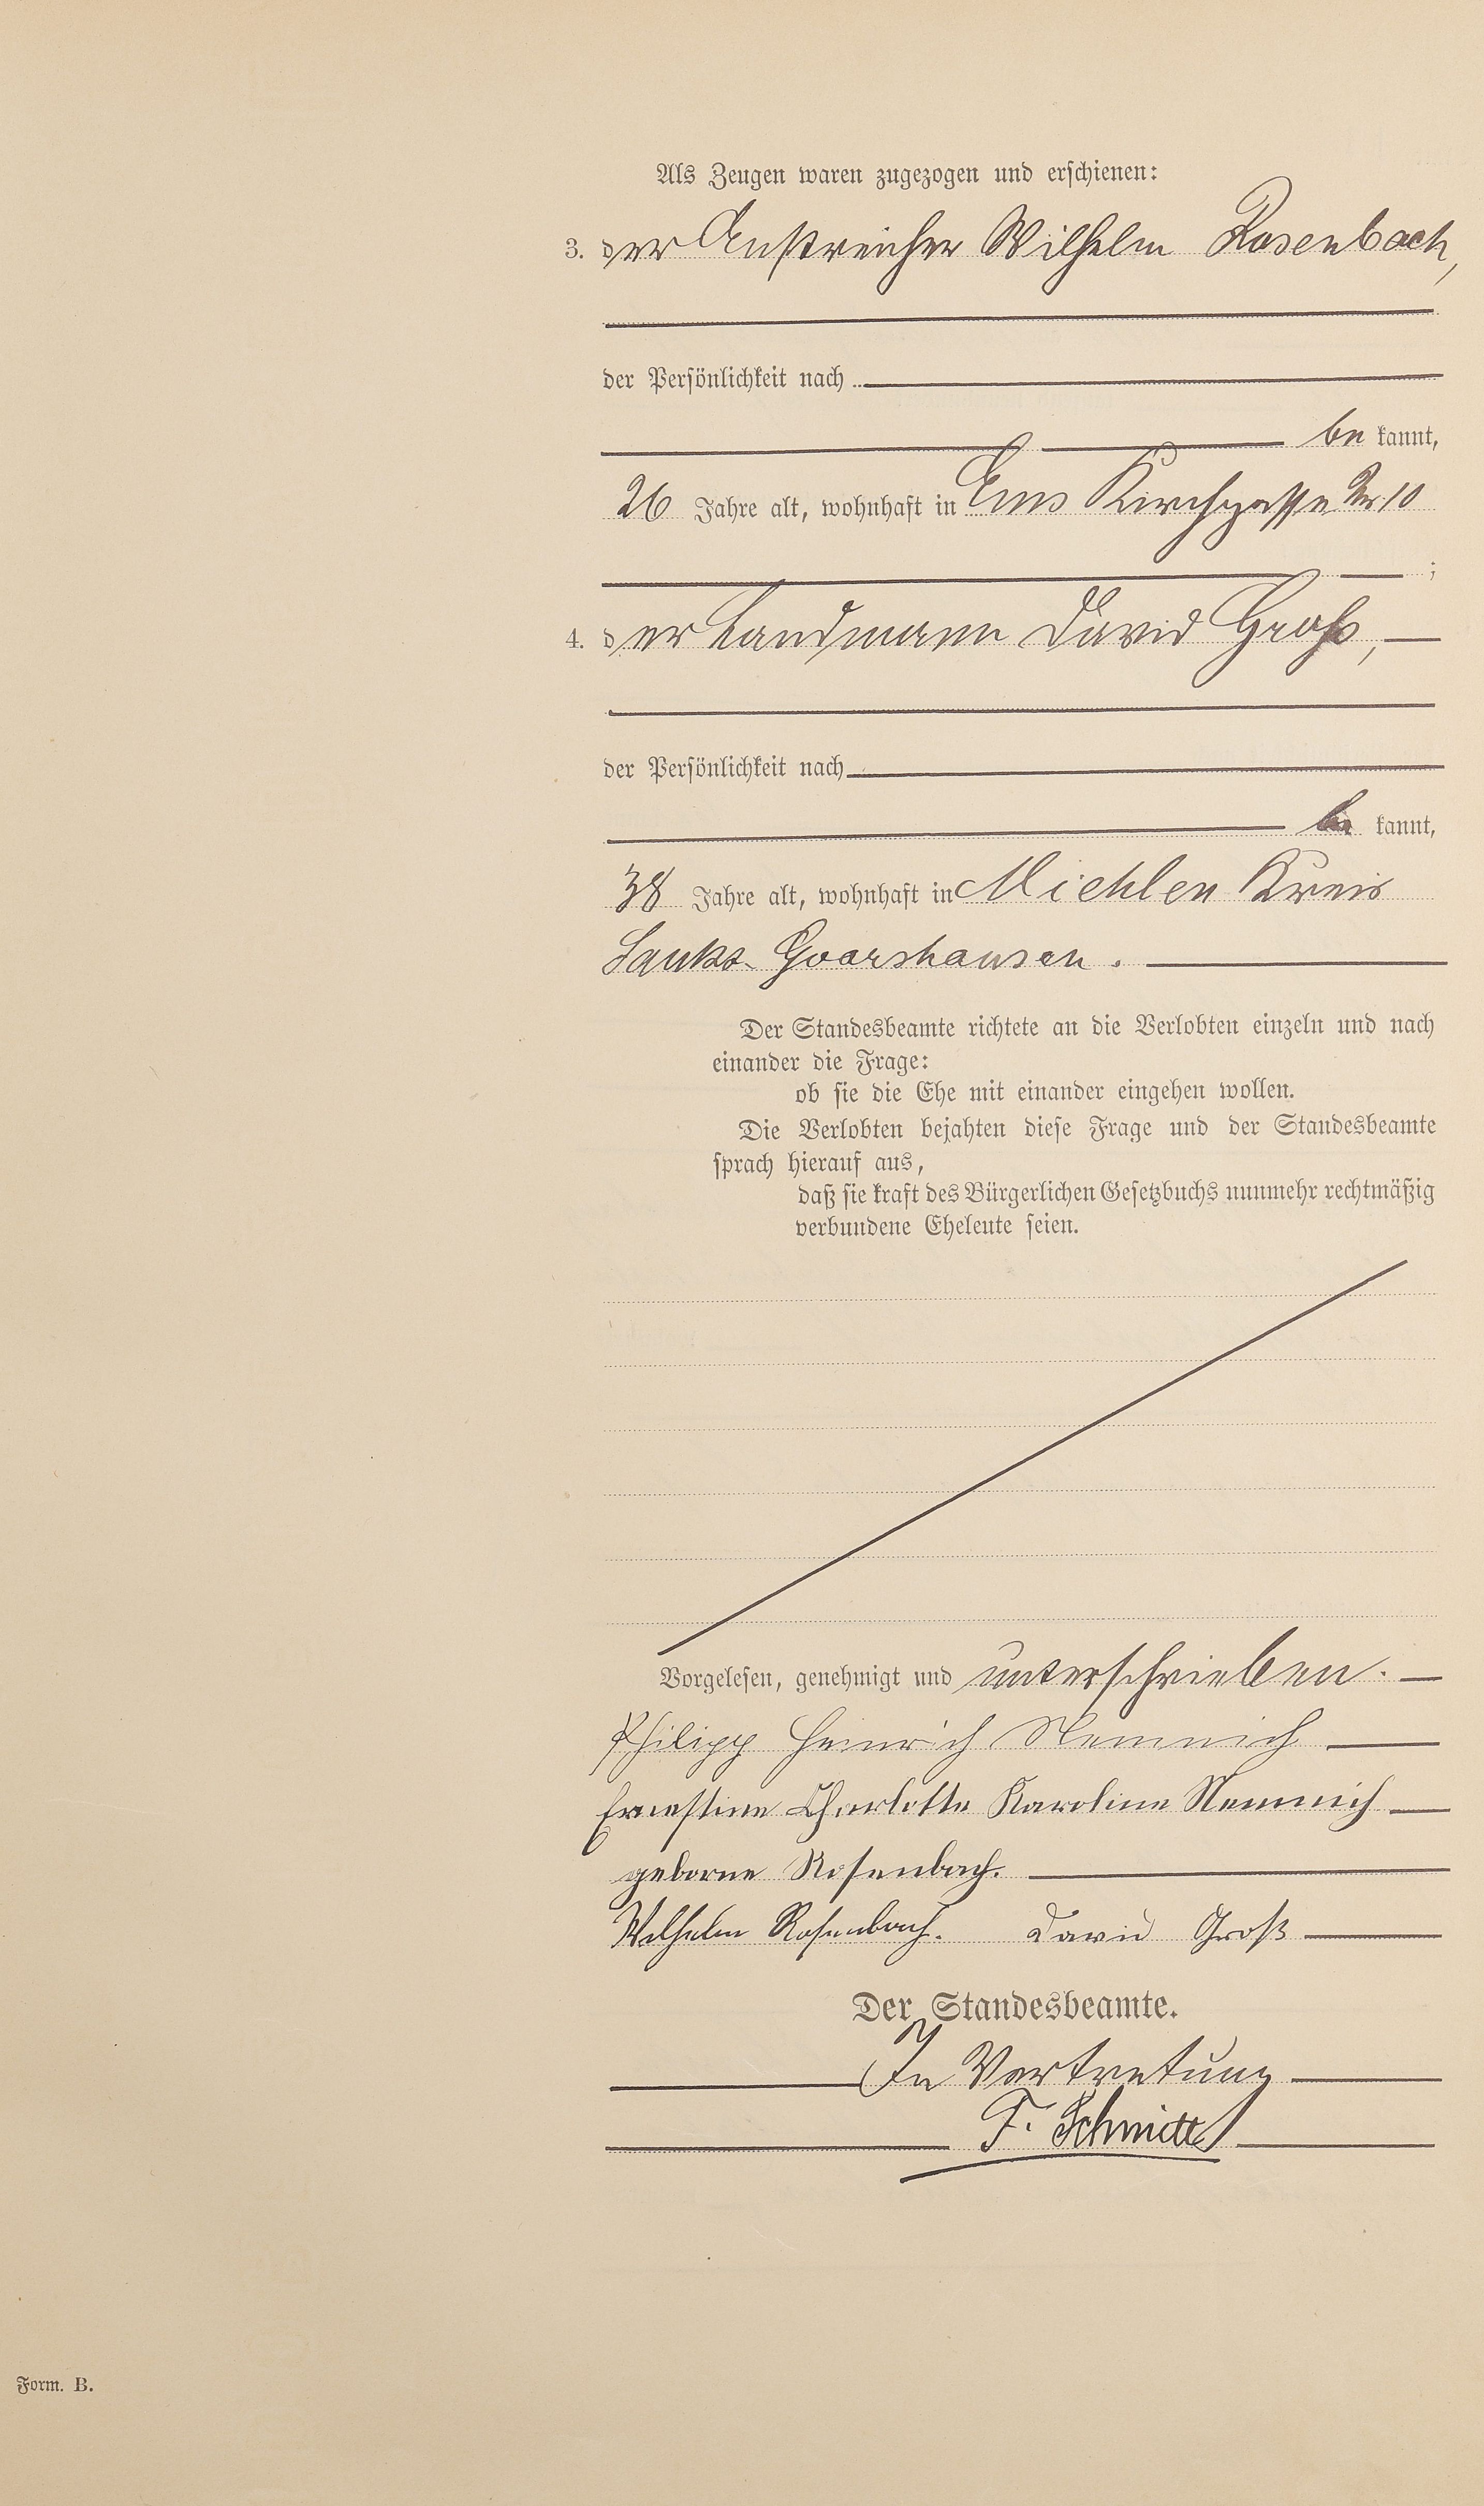 Als Zeugen waren zugezogen und erschienen:
3. der Anstreicher Wilhelm Rosenbach,
der Persönlichkeit nach
be kannt,
26 Jahre alt, wohnhaft in Ems Kirchgasse Nr. 10
;
4. der Landmann David Groß,
der Persönlichkeit nach
be kannt,
38 Jahre alt, wohnhaft in Miehlen Kreis
Sankt Goarshausen.
Der Standesbeamte richtete an die Verlobten einzeln und nach
einander die Frage:
ob sie die Ehe mit einander eingehen wollen.
Die Verlobten bejahten diese Frage und der Standesbeamte
sprach hierauf aus,
daß sie kraft des Bürgerlichen Gesetzbuchs nunmehr rechtmäßig
verbundene Eheleute seien.
Vorgelesen, genehmigt und unterschrieben.
Philipp Heinrich Nemnich
Ernestine Charlotte Karoline Nemnich
geborne Rosenbach.
Wilhelm Rosenbach. David Groß
Der Standesbeamte.
In Vertretung
F. Schmitt
Form. B.